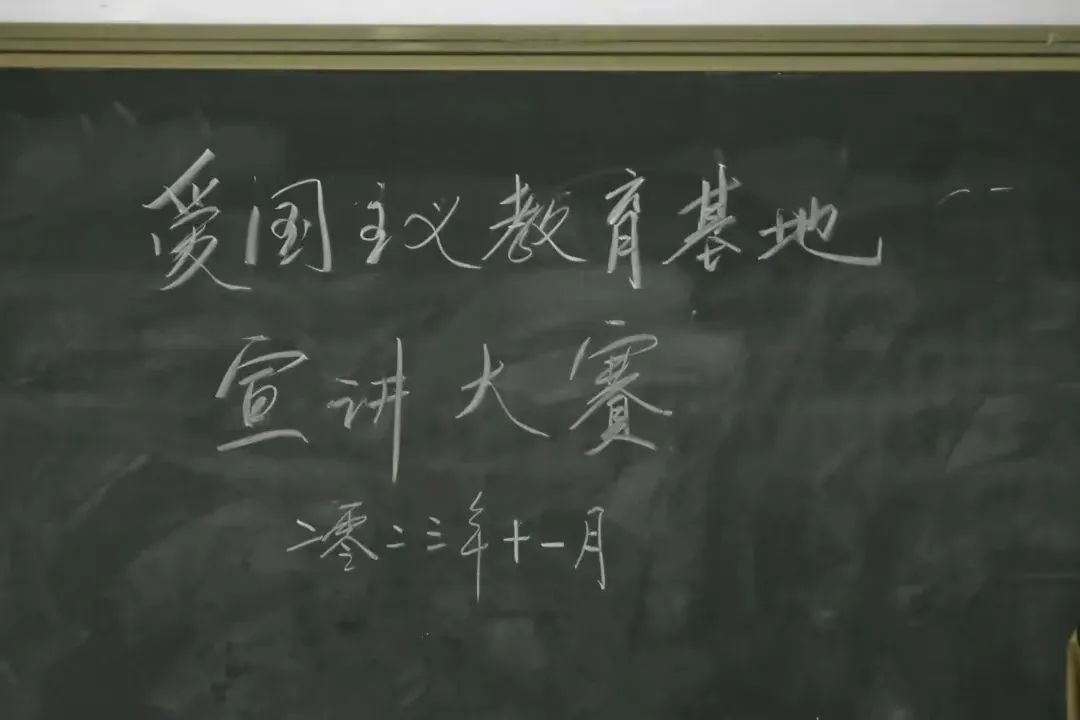 爱国主义教育基地
宣讲大赛
二零二三年十一月